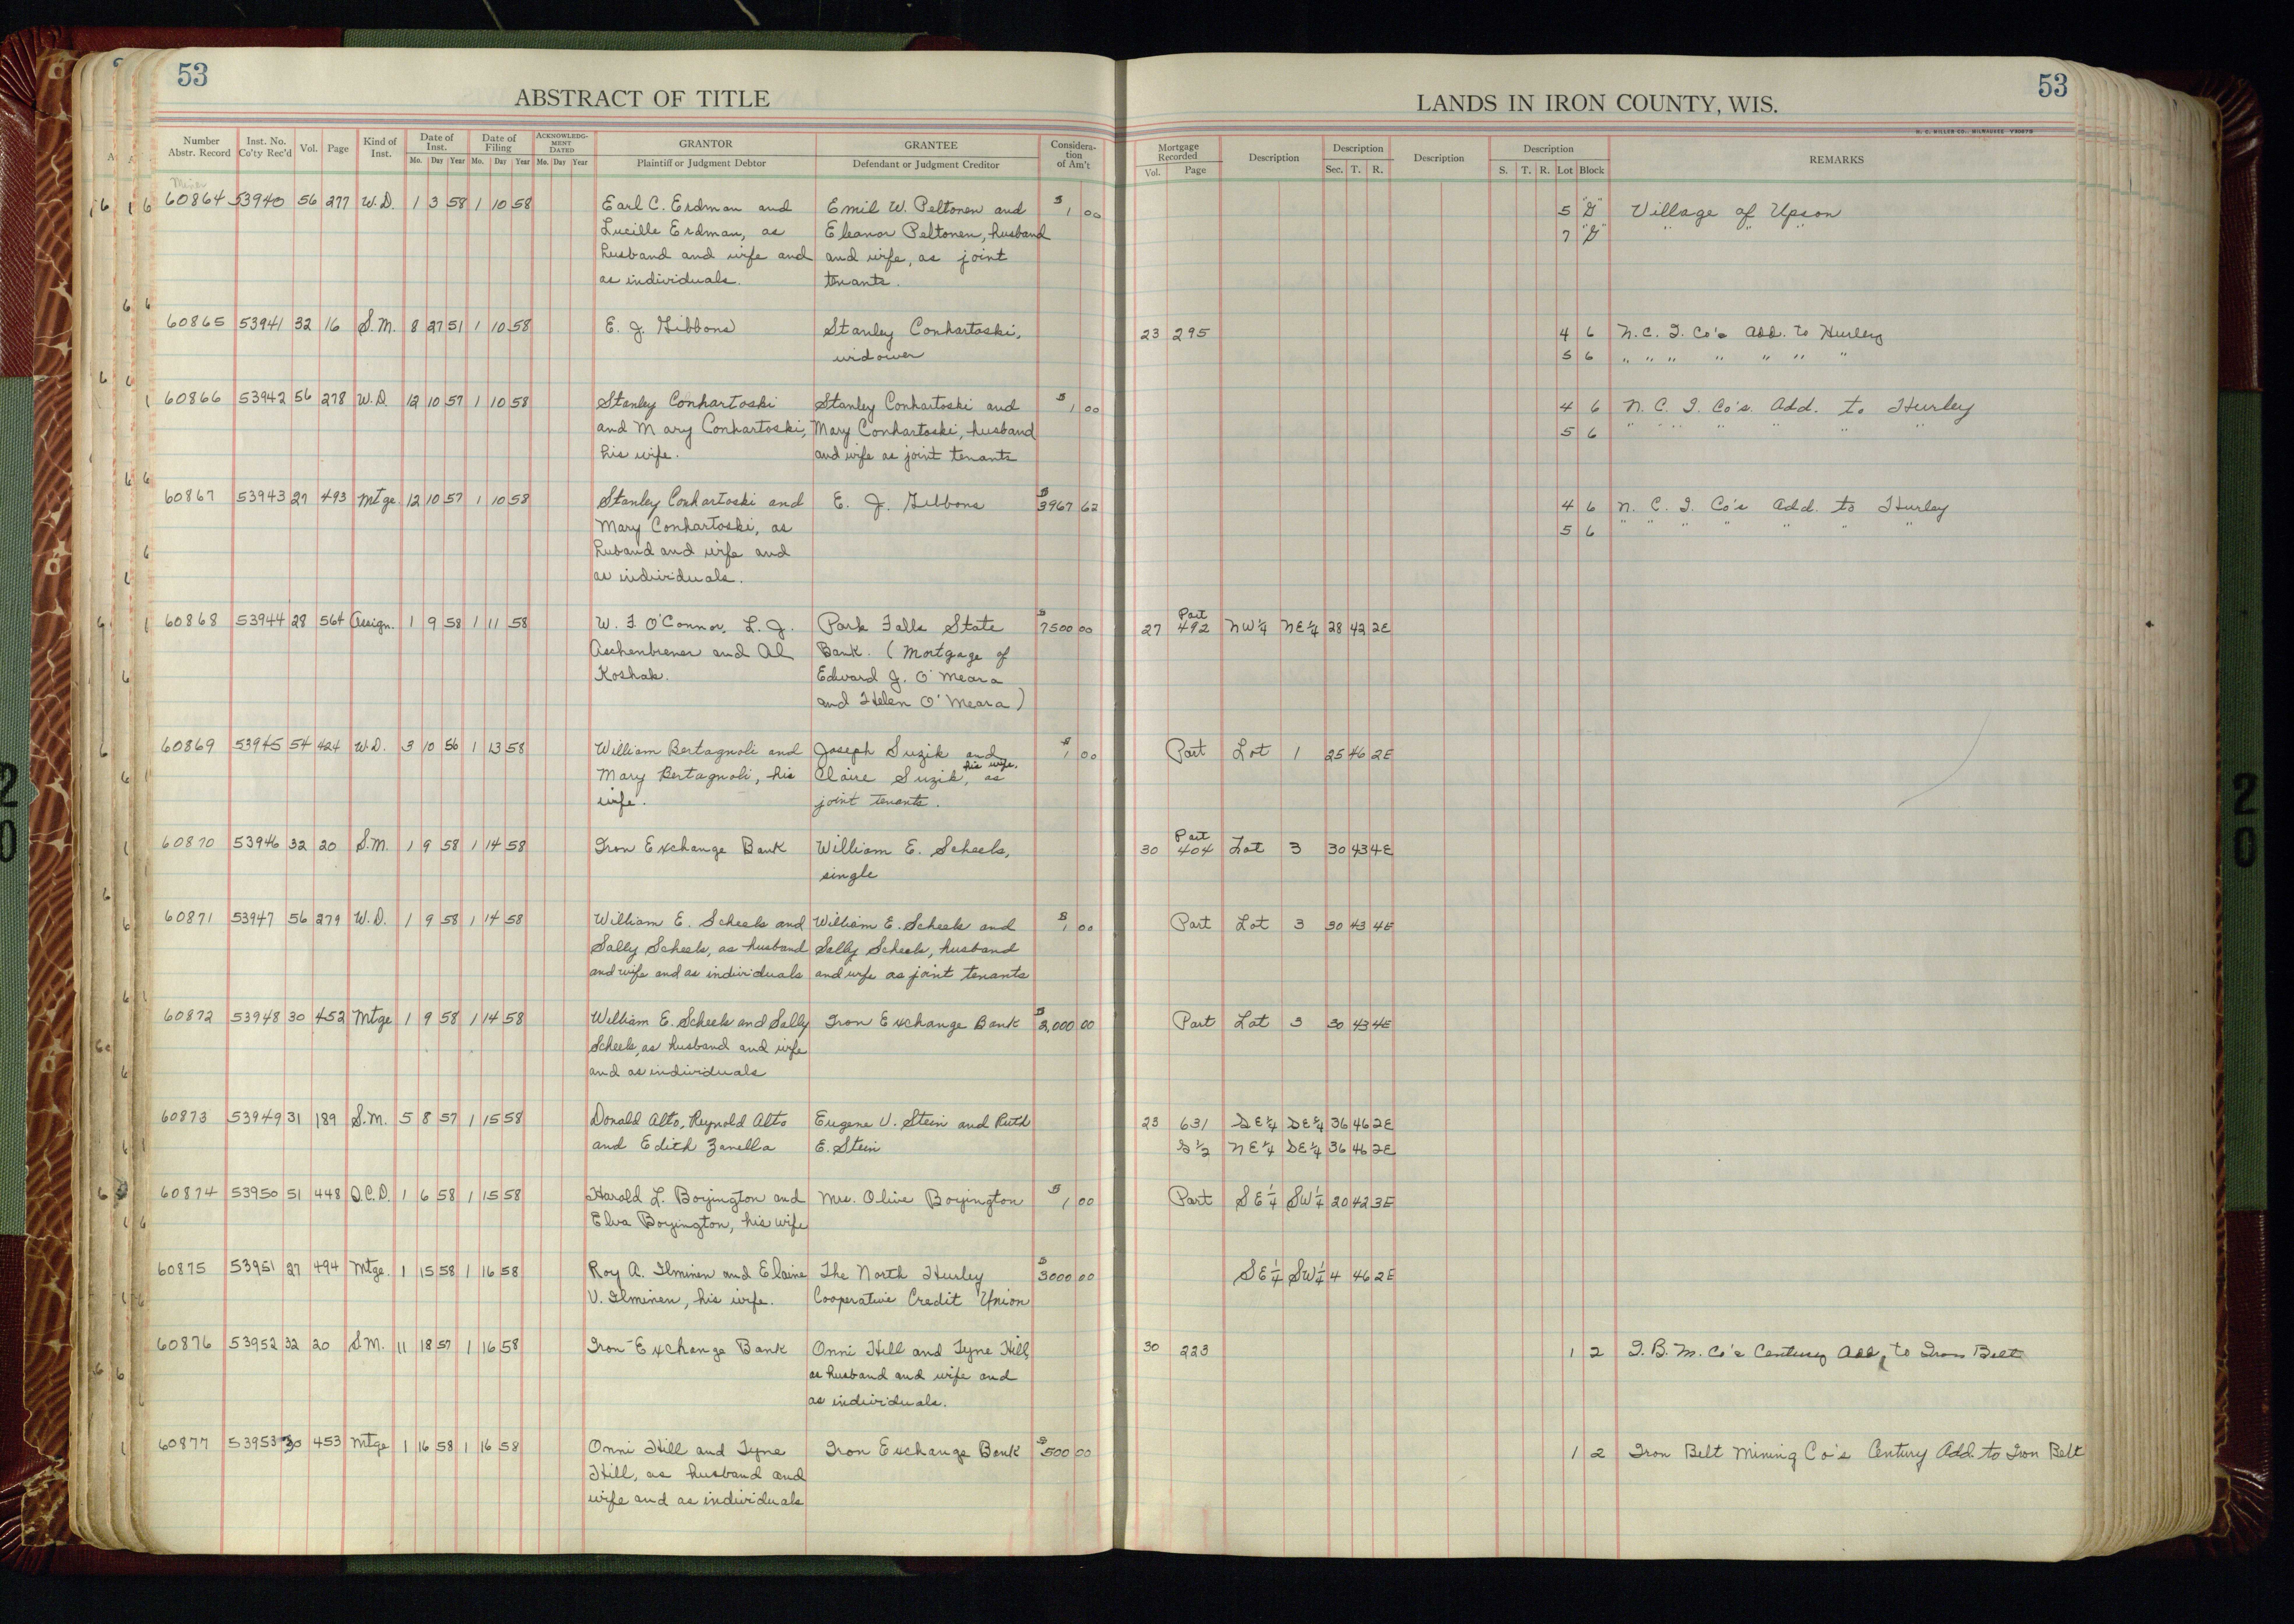 53
ABSTRACT OF TITLE
LANDS IN IRON COUNTY, WIS.
53
H. C. MILLER CO., MILWAUKEE
Number Abstr. Record | Inst. No. Co'ty Rec'd | Vol. | Page | Kind of Inst. | Date of Inst. Mo. Day Year | Date of Filing Mo. Day Year | ACKNOWLEDGMENT DATED Mo. Day Year | GRANTOR Plaintiff or Judgment Debtor | GRANTEE Defendant or Judgment Creditor | Consideration of Am't | Mortgage Recorded Vol. Page | Description | Description Sec. T. R. | Description | Description S. T. R. Lot Block | REMARKS
60864 53940 56 277 W.D. 1 3 58 1 10 58 Earl C. Erdman and Emil W. Peltonen and $ 1 00 5 "G" Village of Upson
Lucille Erdman, as Eleanor Peltonen, husband 7 "G" " " "
husband and wife and and wife, as joint
as individuals. tenants.
60865 53941 32 16 S.M. 8 27 51 1 10 58 E. J. Gibbons Stanley Conhartoski, 23 295 4 6 N.C.I. Co's Add. to Hurley
widower 5 6 " " " " " " "
60866 53942 56 278 W.D. 12 10 57 1 10 58 Stanley Conhartoski Stanley Conhartoski and $ 1 00 4 6 N. C. I. Co's. Add. to Hurley
and Mary Conhartoski, Mary Conhartoski, husband 5 6 " " " " " " "
his wife. and wife as joint tenants
60867 53943 27 493 Mtge. 12 10 57 1 10 58 Stanley Conhartoski and E. J. Gibbons $ 3967 62 4 6 N. C. I. Co's Add. to Hurley
Mary Conhartoski, as 5 6 " " " " " " "
husband and wife and
as individuals.
60868 53944 28 564 Assign. 1 9 58 1 11 58 W. F. O'Connor, L. J. Park Falls State $ 7500 00 27 Part 492 NW¼ NE¼ 28 42 2E
Aschenbrener and Al Bank. (Mortgage of
Koshak. Edward J. O'Meara
and Helen O'Meara)
60869 53945 54 424 W.D. 3 10 56 1 13 58 William Bertagnoli and Joseph Suzik and $ 1 00 Part Lot 1 25 46 2E
Mary Bertagnoli, his Claire Suzik, his wife, as
wife. joint tenants.
60870 53946 32 20 S.M. 1 9 58 1 14 58 Iron Exchange Bank William E. Scheels, 30 Part 404 Lot 3 30 43 4E
single
60871 53947 56 279 W.D. 1 9 58 1 14 58 William E. Scheels and William E. Scheels and $ 1 00 Part Lot 3 30 43 4E
Sally Scheels, as husband Sally Scheels, husband
and wife and as individuals and wife as joint tenants
60872 53948 30 452 Mtge 1 9 58 1 14 58 William E. Scheels and Sally Iron Exchange Bank $ 2,000 00 Part Lot 3 30 43 4E
Scheels, as husband and wife
and as individuals
60873 53949 31 189 S.M. 5 8 57 1 15 58 Donald Alto, Reynold Alto Eugene V. Stein and Ruth 23 631 SE¼ SE¼ 36 46 2E
and Edith Zanella E. Stein S½ NE¼ SE¼ 36 46 2E
60874 53950 51 448 Q.C.D. 1 6 58 1 15 58 Harold L. Boyington and Mrs. Olive Boyington $ 1 00 Part SE¼ SW¼ 20 42 3E
Elva Boyington, his wife
60875 53951 27 494 Mtge. 1 15 58 1 16 58 Roy A. Ilminen and Elaine The North Hurley $ 3000 00 SE¼ SW¼ 4 46 2E
V. Ilminen, his wife. Cooperative Credit Union
60876 53952 32 20 S.M. 11 18 57 1 16 58 Iron Exchange Bank Onni Hill and Tyne Hill, 30 223 1 2 I.B.M. Co's Century Add, to Iron Belt
as husband and wife and
as individuals.
60877 53953 30 453 Mtge 1 16 58 1 16 58 Onni Hill and Tyne Iron Exchange Bank $ 500 00 1 2 Iron Belt Mining Co's Century Add. to Iron Belt
Hill, as husband and
wife and as individuals